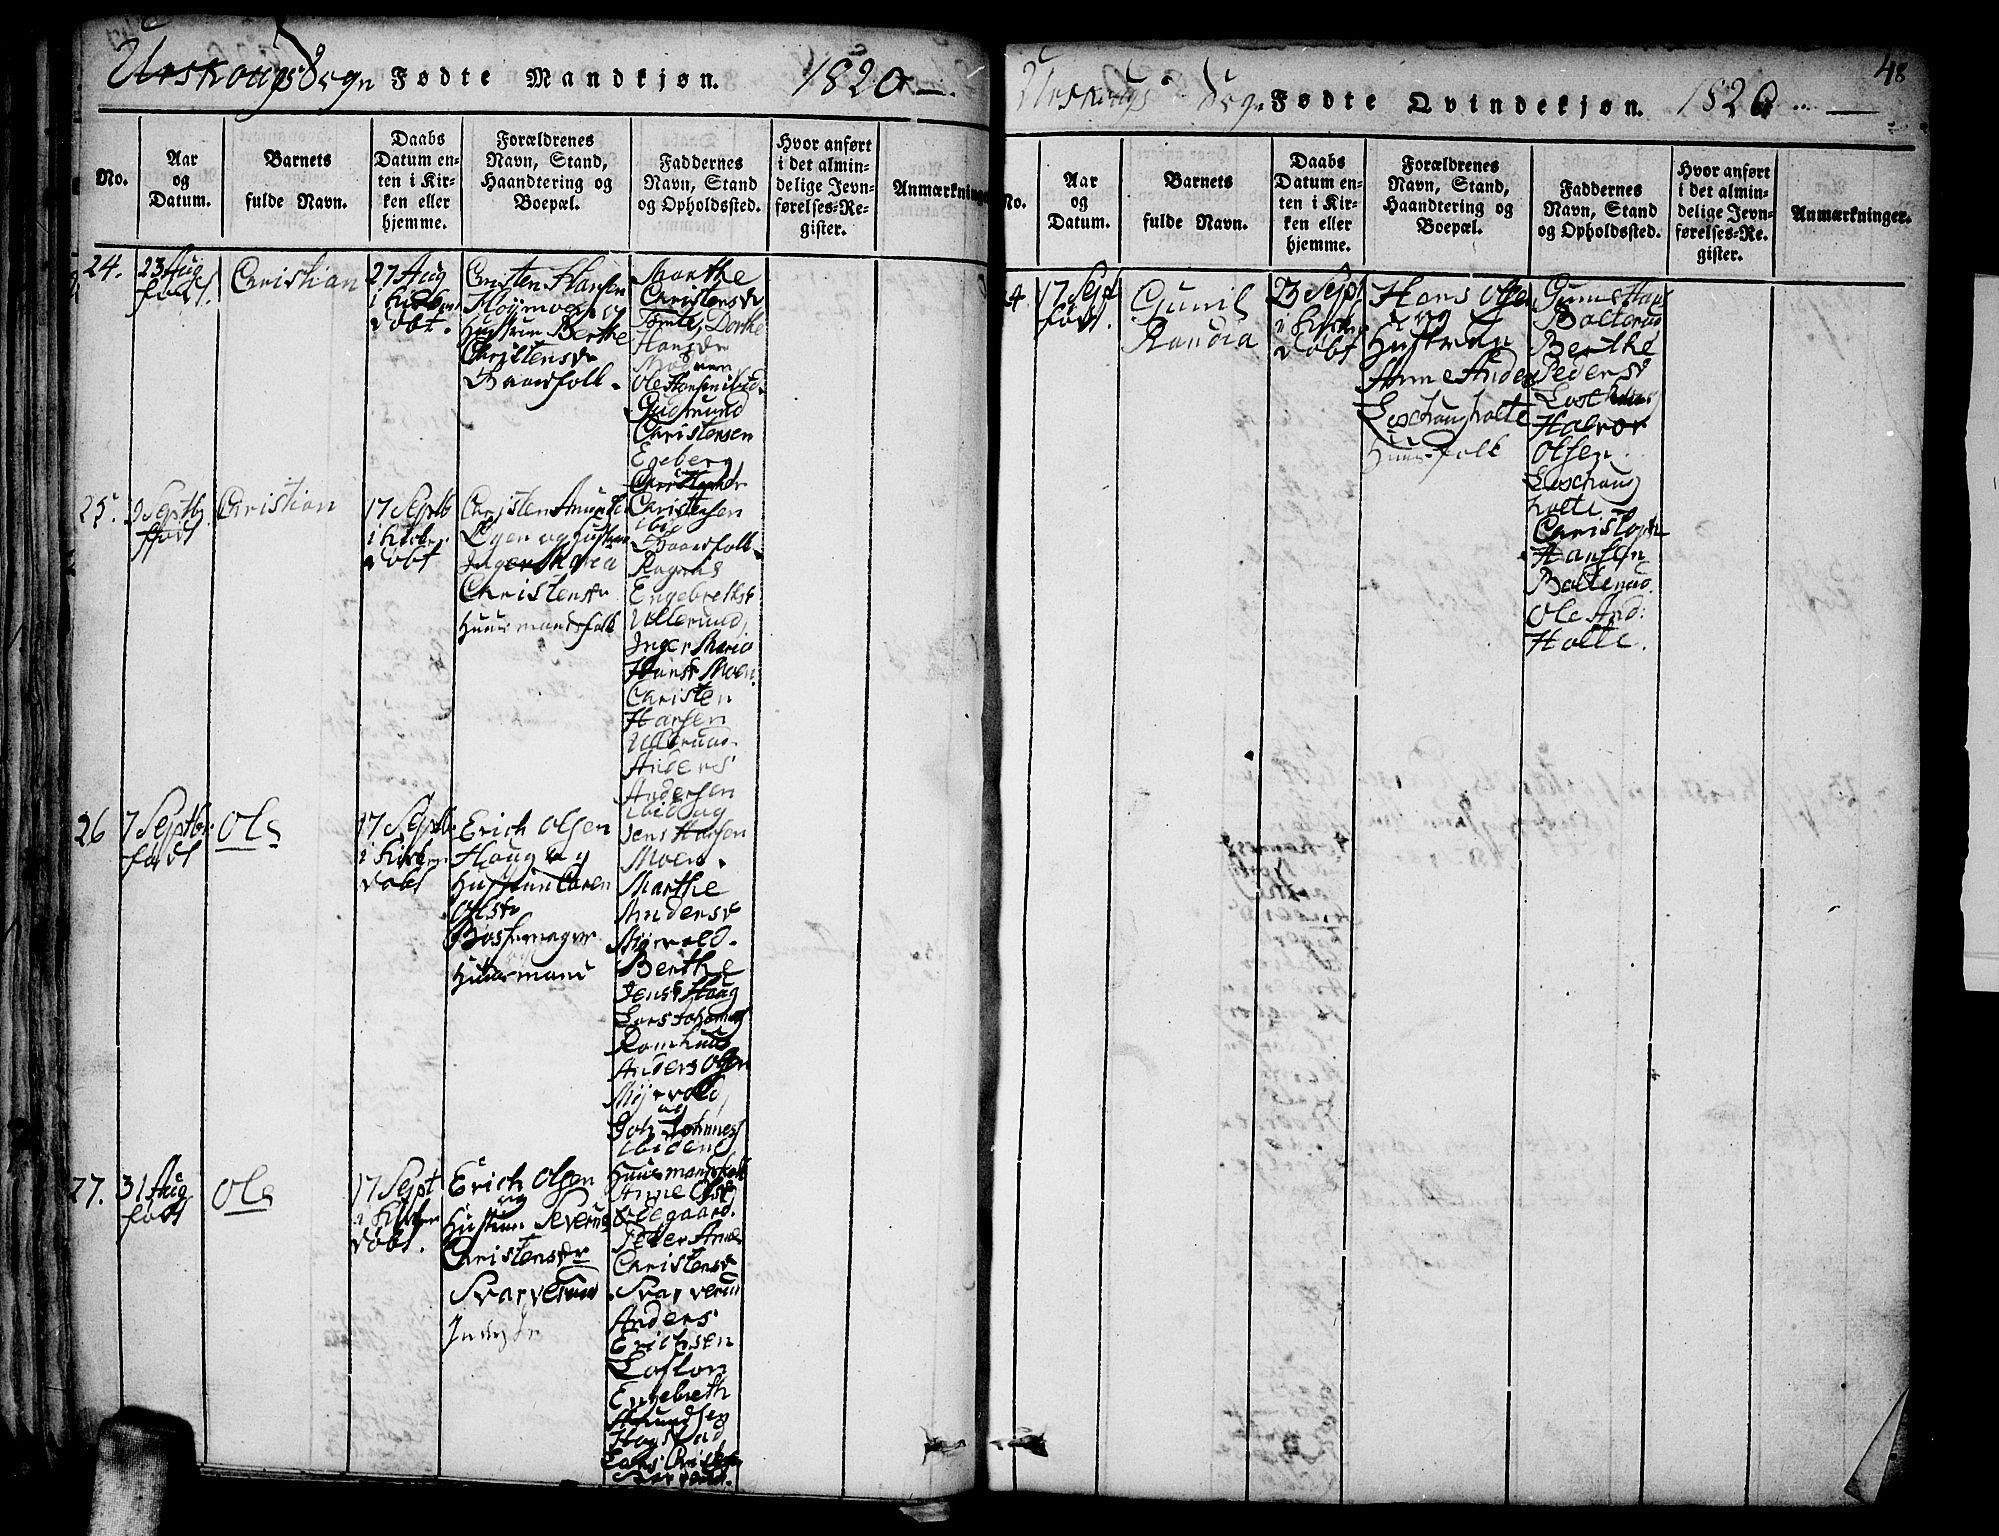 Urskougs Sogn Fødte Mandkjøn. 1820
No.
Aar
og
Datum.
Barnets
fulde Navn.
Daabs
Datum en-
ten i Kir-
ken eller
hjemme.
Forældrenes
Navn, Stand,
Haandtering og
Boepæl.
Faddernes
Navn, Stand
og Opholdssted.
Hvor anført
i det almin-
delige Jevn-
førelses-Re-
gister.
Anmærkninge
24.
23 Aug
født.
Christian
27 Aug
i Kirken
døbt.
Christen Hansen
og
Hustrue Berthe
Christensdr
Baardfolk.
Marthe
Christensdr
Tomte, Dorthe
Hansdr
Ole Hansen ibid.
Gudmund
Christensen
Egeberg
Christensen
ibid
Baardfolk
25.
9 Septbr
født
Christian
17 Septb
i Kirken
døbt
Christen Amunds
og Hustrue
Inger Maria
Christensdr
Huusmandsfolk
Ragnild
Engebrethsdr
Ullerund,
Inger Maria
Hansdr Moen
Christen
Hansen
Ullerund
Anders
Andersen
ibid og
Jens Hansen
Moen.
26
7 Septbr
født
Ole
17 Septbr
i Kirken
døbt
Erich Olsen
Haug og
Hustrue Caren
Olsdr
Bøssemager
Huusmand
Marthe
Andersdr
Myrvold.
Berthe
Jensdr Haug
Lars Johannes
Romhuus
Anders Olsen
Myrvold,
og
Joh Johannes
ibidem
Huusmandsfolk
27.
31 Aug
født
Ole
17 Sept
i Kirken
døbt.
Erich Olsen
og
Hustrue Severine
Christensdr
Svarverud
Anne Olsdr
Ødegaard.
Peder Anne
Christensdr
Svarverud
Anders
Erichsen
Engebreth
Amundsen
Hogstad
Lars Christen
Svarverud.
Urskougs Sogn Fødte Qvindekjøn. 1820
48
No.
Aar
og
Datum.
Barnets
fulde Navn.
Daabs
Datum en-
ten i Kir-
ken eller
hjemme.
Forældrenes
Navn, Stand,
Haandtering og
Boepæl.
Faddernes
Navn, Stand
og Opholdssted.
Hvor anført
i det almin-
delige Jevn-
førelses-Re-
gister.
Anmærkninger.
4
17 Sept
født.
Gunil
Randia
23 Sept
i Kirken
døbt
Hans Olsen
og
Hustrue
Anne Anders
Leschougholte
Huusfolk
Bolterud
Berthe
Pedersdr
Leschoug
Halvor
Olsen
Leschoug
holte
Christopher
Hansen
Bolterud.
Ole And:
Holte.